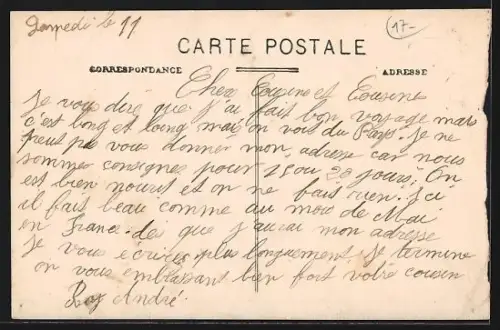 Samedi le 11
17-
CARTE POSTALE
CORRESPONDANCE
ADRESSE
Cher Cousine et Cousine
Je vous dire que j'ai fait bon voyage mais
c'est long et loing mais on voit du Pays. Je ne
peut pas vous donner mon adresse car nous
sommes consignes pour 15 ou 20 jours. On
est bien nourit et on ne fait rien. Ici
il fait beau comme au mois de Mai
en France. des que j'aurai mon adresse
je vous ecrirez plu longuement. Je termine
on vous embrassant bien fort votre cousin
André